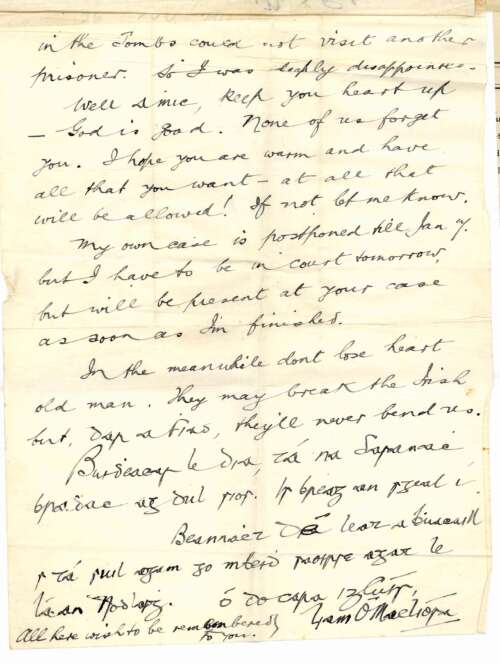 in the Tombs could not visit another
prisoner. So I was deeply disappointed.
Well a mic, keep you heart up
— God is good. None of us forget
you. I hope you are warm and have
all that you want — at all that
will be allowed! If not let me know.
My own case is postponed till Jan 7.
but I have to be in court tomorrow,
but will be present at your case
as soon as I'm finished.
In the meanwhile dont lose heart
old man. They may break the Irish
but, dar a fiad, they'll never bend us.
Buideacas le Dia, tá na Sasanaic
bradac ag dul síos. Is breag an sgeal í.
Beannact Dé leat a buacaill
7 tá suil agam go mbeid saoirse agat le
lá an Nodlag. Ó do cara i
All here wish to be remembered
to you.
Liam Ó